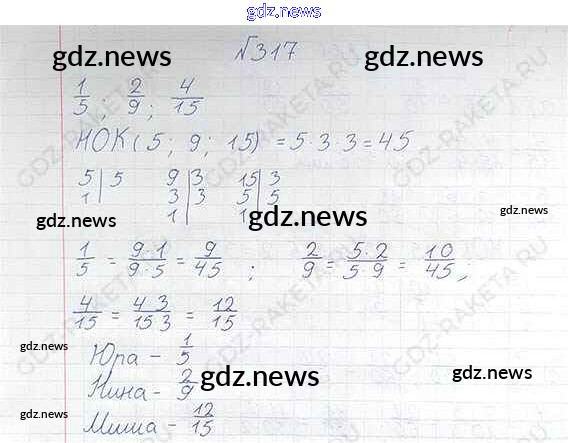 gdz.news
№317
gdz.news gdz.news
1/5; 2/9; 4/15
НОК(5; 9; 15) = 5·3·3 = 45
5|5 9|3 15|3
1| 3|3 5|5
1| 1|
gdz.news gdz.news gdz.news
1/5 = 9·1/9·5 = 9/45; 2/9 = 5·2/5·9 = 10/45;
4/15 = 4 3/15 3 = 12/15
gdz.news Юра - 1/5
Нина - 2/9 gdz.news gdz.news
gdz.news Миша - 12/15
GDZ-RAKETA.RU